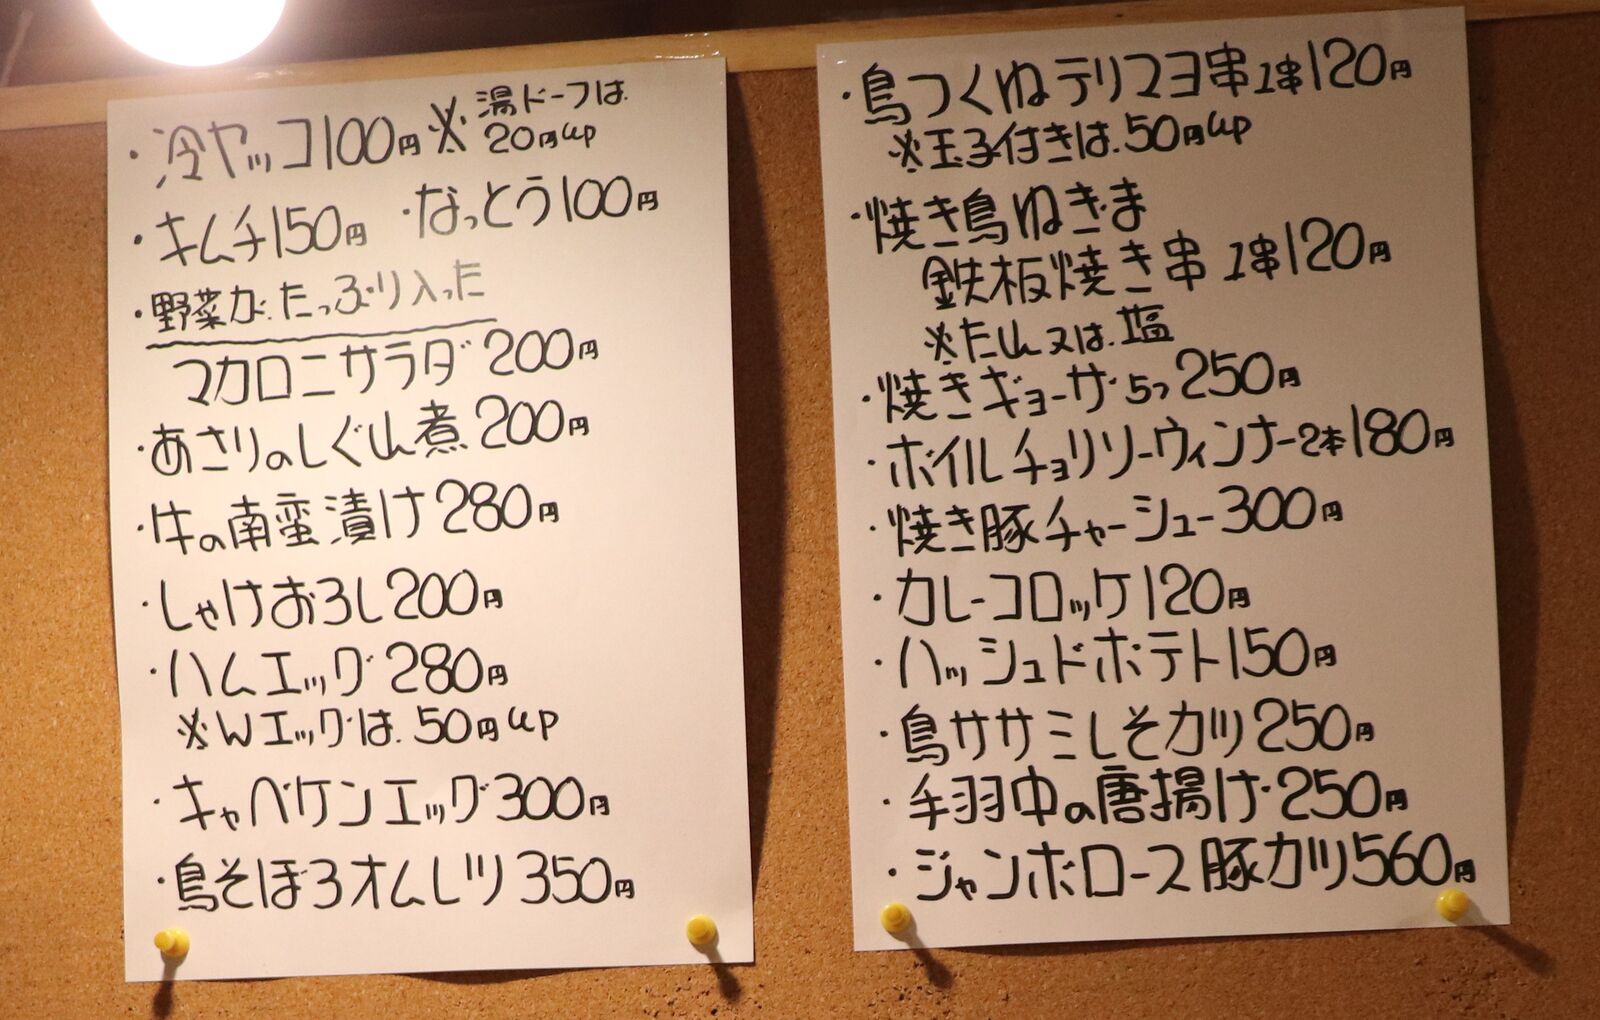 ・冷ヤッコ100円 ※湯ドーフは
20円up
・キムチ150円 ・なっとう100円
・野菜がたっぷり入った
マカロニサラダ200円
・あさりのしぐれ煮200円
・牛の南蛮漬け280円
・しゃけおろし200円
・ハムエッグ280円
※Wエッグは50円up
・キャベケンエッグ300円
・鳥そぼろオムレツ350円
・鳥つくねテリマヨ串1串120円
※玉子付きは50円up
・焼き鳥ねぎま
鉄板焼き串 1串120円
※たれ又は塩
・焼きギョーザ5つ250円
・ボイルチョリソーウィンナー2本180円
・焼き豚チャーシュー300円
・カレーコロッケ120円
・ハッシュドポテト150円
・鳥ササミしそカツ250円
・手羽中の唐揚げ250円
・ジャンボロース豚カツ560円